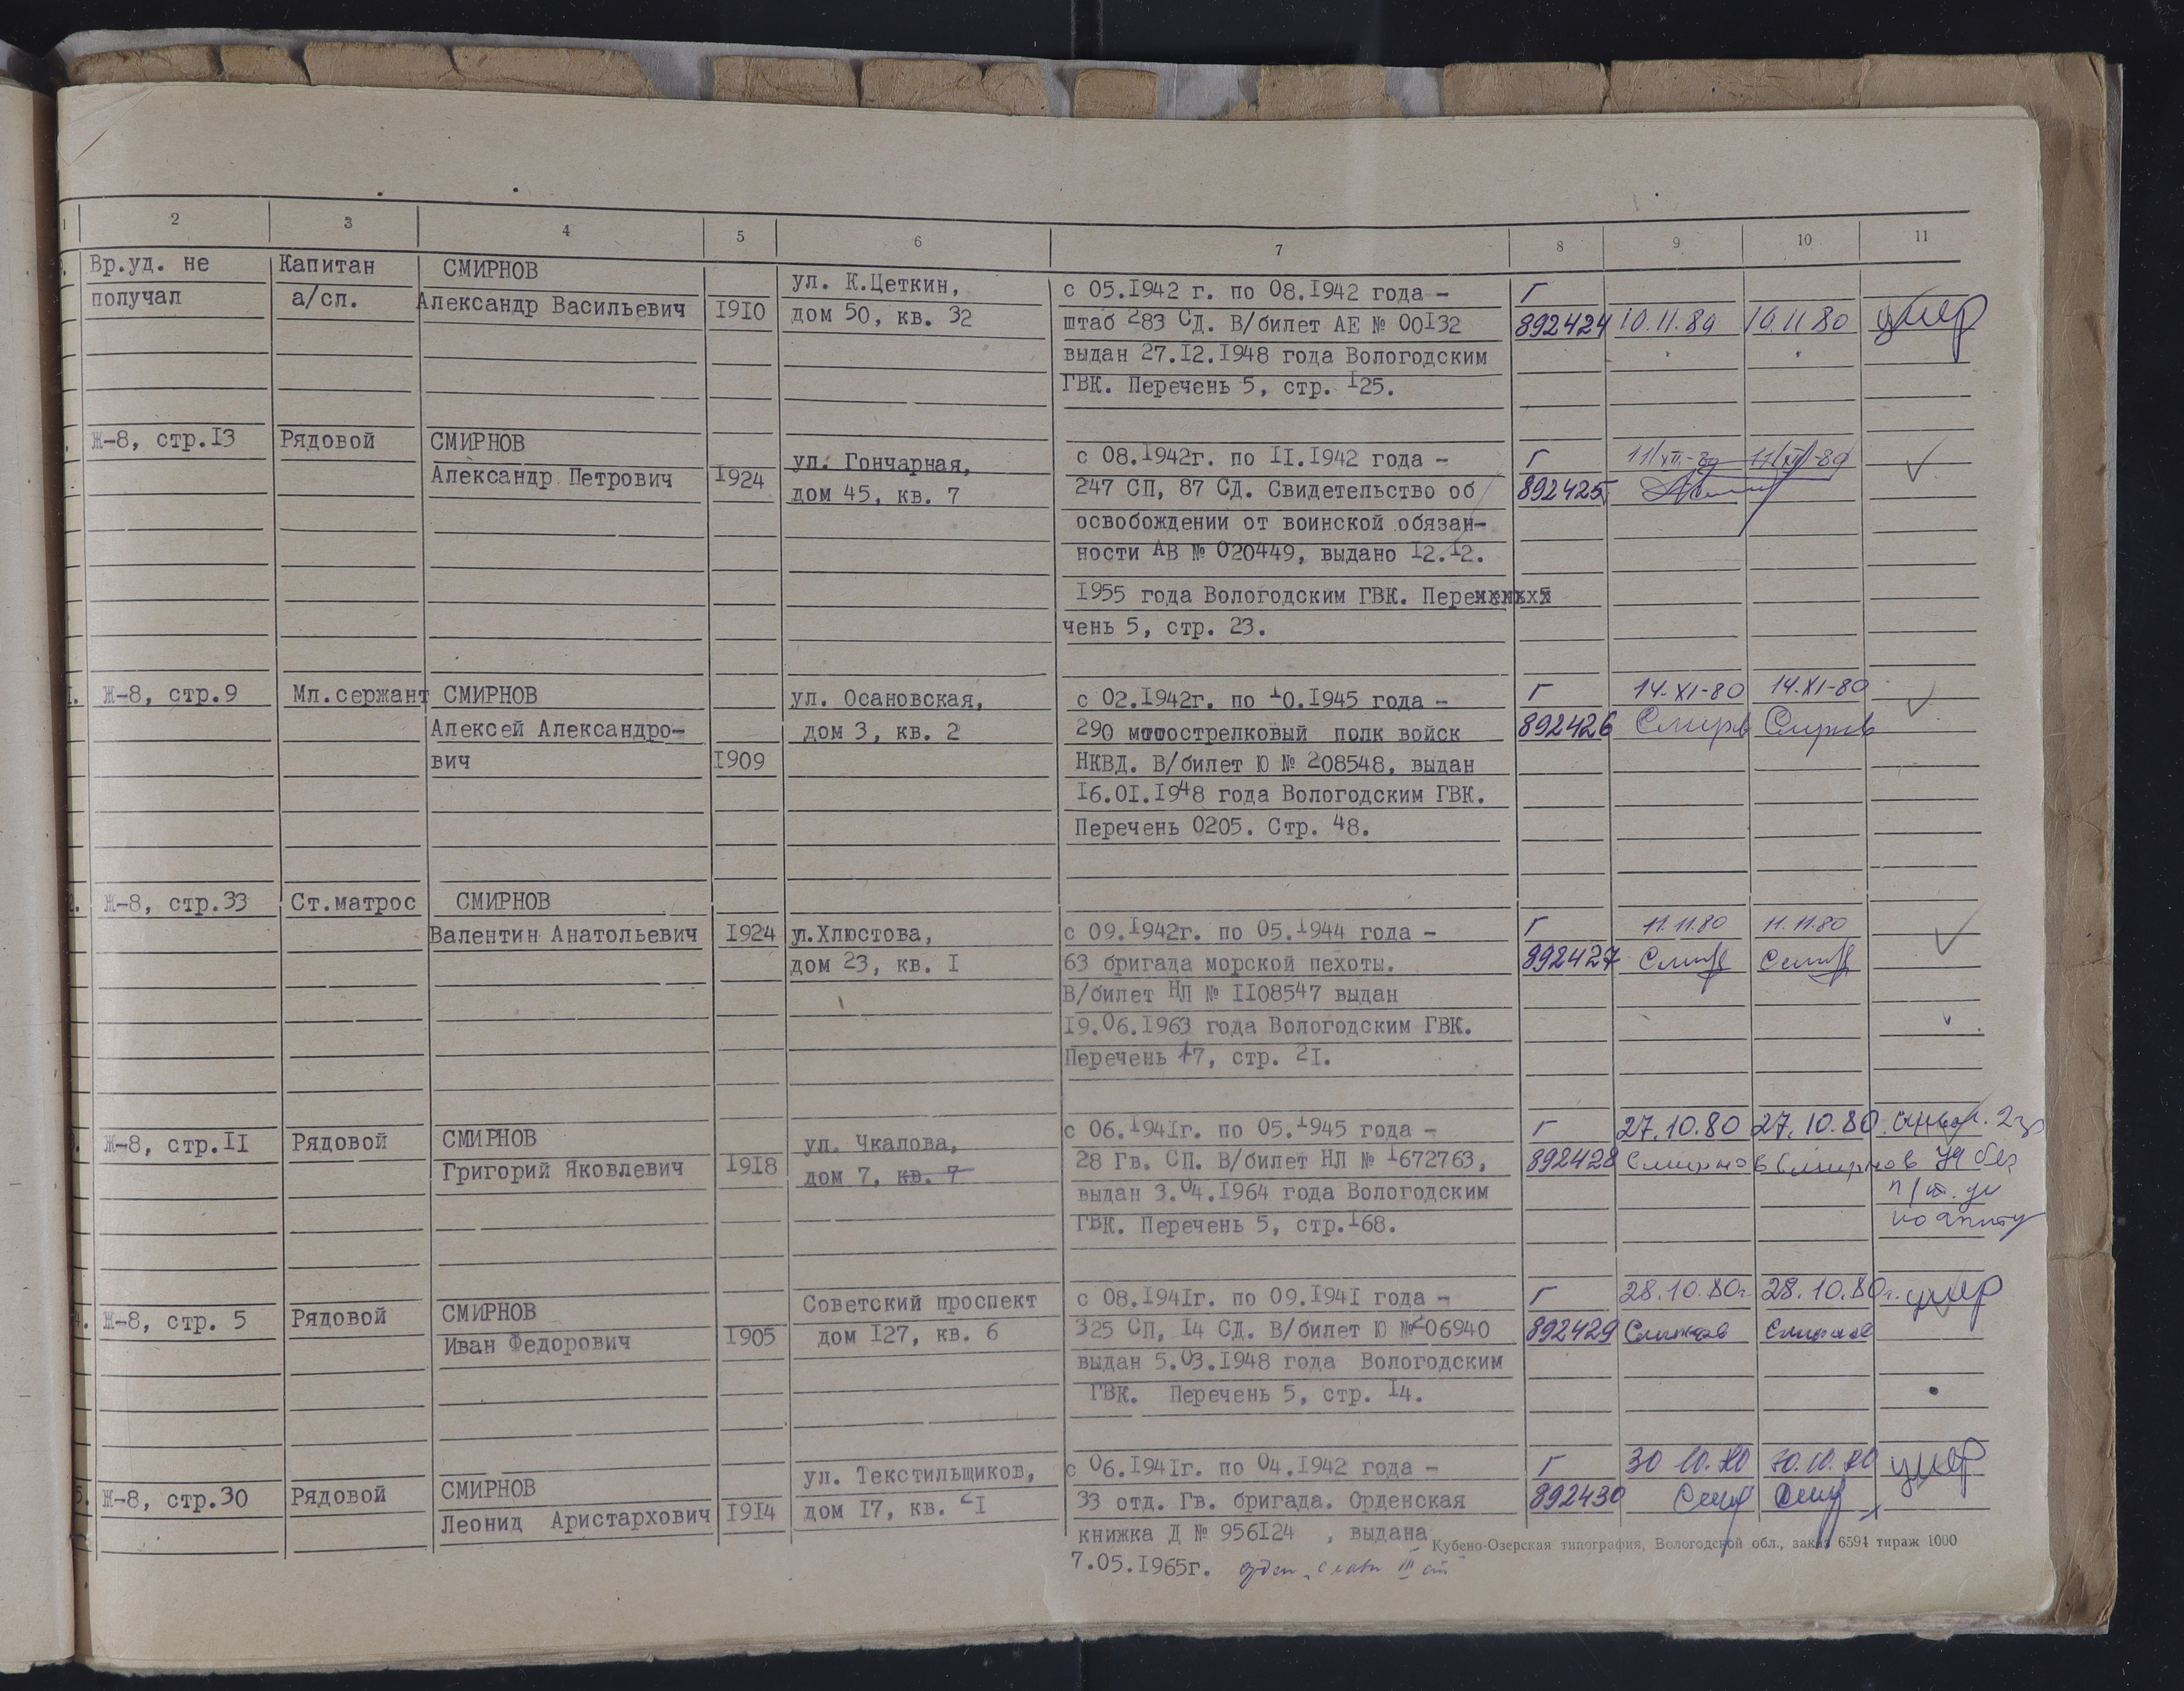 1 2 3 4 5 6 7 8 9 10 11
Вр.уд. не
получал
Капитан
а/сл.
СМИРНОВ
Александр Васильевич
1910
ул. К.Цеткин,
дом 50, кв. 32
с 05.1942 г. по 08.1942 года –
штаб 283 СД. В/билет АЕ № 00132
выдан 27.12.1948 года Вологодским
ГВК. Перечень 5, стр. 125.
Г
892424
10.11.80
10.11.80
умер
Ж-8, стр.13
Рядовой
СМИРНОВ
Александр Петрович
1924
ул. Гончарная,
дом 45, кв. 7
с 08.1942г. по 11.1942 года –
247 СП, 87 СД. Свидетельство об
освобождении от воинской обязан-
ности АВ № 020449, выдано 12.12.
1955 года Вологодским ГВК. Пере
чень 5, стр. 23.
Г
892425
11/XII-80
11/XII-80
1.
Ж-8, стр.9
Мл.сержант
СМИРНОВ
Алексей Александро-
вич
1909
ул. Осановская,
дом 3, кв. 2
с 02.1942г. по 10.1945 года –
290 мотострелковый полк войск
НКВД. В/билет Ю № 208548, выдан
16.01.1948 года Вологодским ГВК.
Перечень 0205. Стр. 48.
Г
892426
14.XI-80
14.XI-80
Смирнов
Смирнов
2.
Ж-8, стр.33
Ст.матрос
СМИРНОВ
Валентин Анатольевич
1924
ул.Хлюстова,
дом 23, кв. 1
с 09.1942г. по 05.1944 года –
63 бригада морской пехоты.
В/билет НЛ № 1108547 выдан
19.06.1963 года Вологодским ГВК.
Перечень 17, стр. 21.
Г
892427
11.11.80
11.11.80
3.
Ж-8, стр.11
Рядовой
СМИРНОВ
Григорий Яковлевич
1918
ул. Чкалова,
дом 7, кв. 7
с 06.1941г. по 05.1945 года –
28 Гв. СП. В/билет НЛ № 1672763,
выдан 3.04.1964 года Вологодским
ГВК. Перечень 5, стр.168.
Г
892428
27.10.80
27.10.80
Смирнов
Смирнов
4.
Ж-8, стр. 5
Рядовой
СМИРНОВ
Иван Федорович
1905
Советский проспект
дом 127, кв. 6
с 08.1941г. по 09.1941 года –
325 СП, 14 СД. В/билет Ю №206940
выдан 5.03.1948 года Вологодским
ГВК. Перечень 5, стр. 14.
Г
892429
28.10.80г.
28.10.80г.
Смирнов
Смирнов
умер
5.
Ж-8, стр.30
Рядовой
СМИРНОВ
Леонид Аристархович
1914
ул. Текстильщиков,
дом 17, кв. 21
с 06.1941г. по 04.1942 года –
33 отд. Гв. бригада. Орденская
книжка Д № 956124 , выдана
7.05.1965г. орден „Славы III ст"
Г
892430
30.10.80
30.10.80
умер
Кубено-Озерская типография, Вологодской обл., заказ 6594 тираж 1000